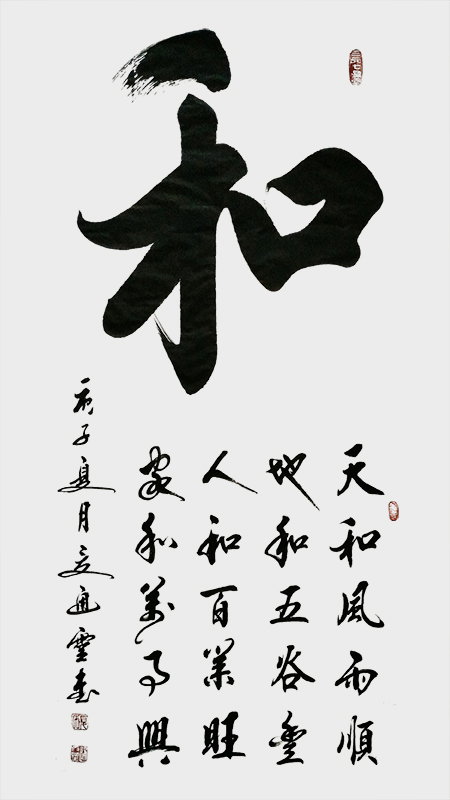 和
天和風雨順
地和五谷豐
人和百業旺
家和萬事興
庚子夏月